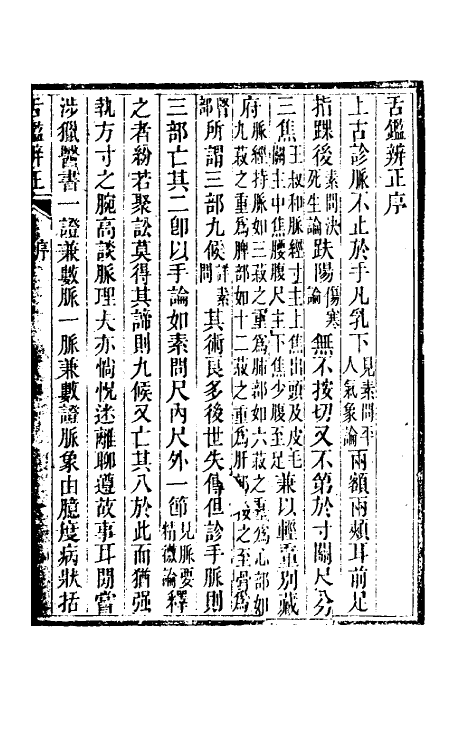 舌鑑辨正序
上古診脈不止於手凡乳下見素問平人氣象論兩額兩頰耳前足
指踝後素問決死生論趺陽傷寒論無不按切又不第於寸關尺分
三焦王叔和脈經寸主上焦出頭及皮毛關主中焦腰腹尺主下焦少腹至足兼以輕重別藏
府脈經持脈如三菽之重爲肺部如六菽之重爲心部如九菽之重爲脾部如十二菽之重爲肝部按之至骨爲
腎部所謂三部九候詳素問其術良多後世失傳但診手脈則
三部亡其二卽以手論如素問尺內尺外一節見脈要精微論釋
之者紛若聚訟莫得其諦則九候又亡其八於此而猶强
執方寸之腕高談脈理夫亦惝怳迷離聊遵故事耳閒嘗
涉獵醫書一證兼數脈一脈兼數證脈象由臆度病狀括
舌鑑辨正
序